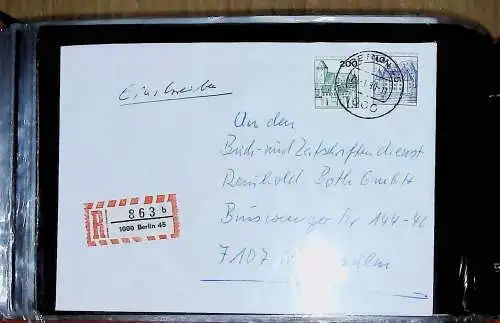 200
Einschreiben
1000
An den
Buch- und Zeitschriftendienst
Reinhold Both GmbH
Str. 144-46
R 863 b
1000 Berlin 45
7107